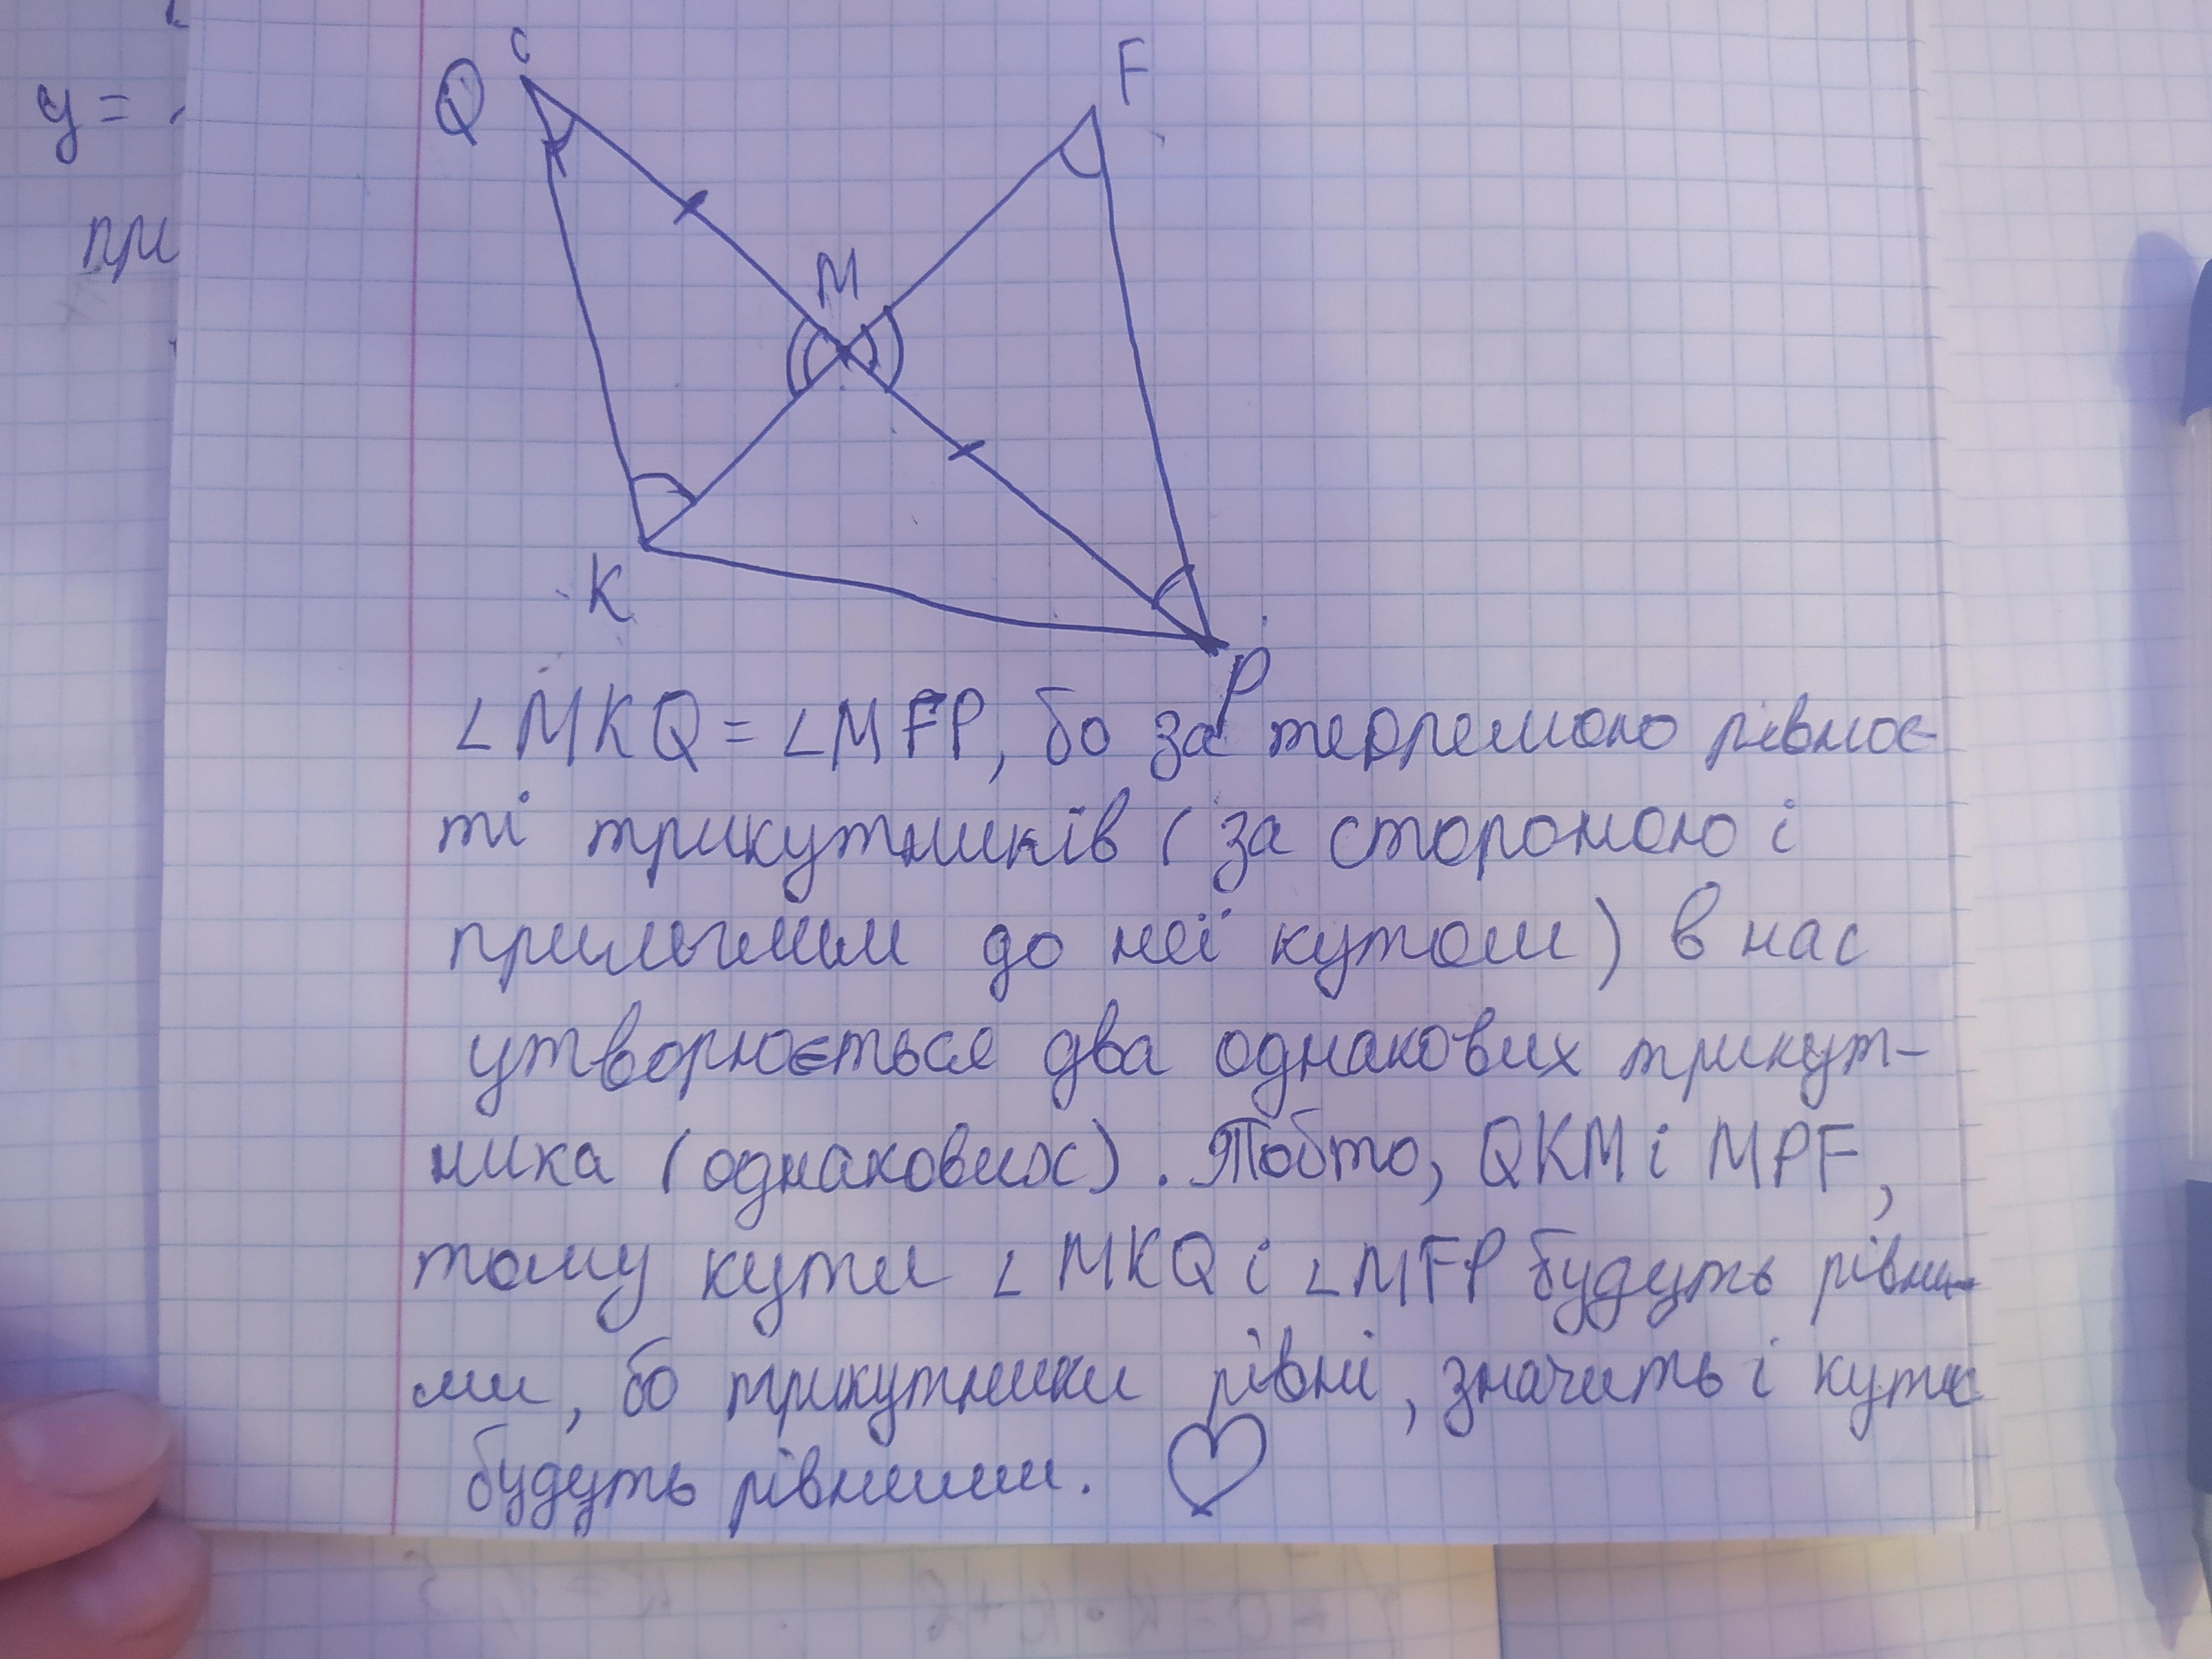 y =
при
Q
F
M
K
P
∠MKQ = ∠MFP, бо за теоремою рівнос-
ті трикутників (за стороною і
прилыгним до неї кутом) в нас
утворюється два однакових трикут-
ника (однакових). Тобто, QKM і MPF,
тому кути ∠MKQ і ∠MFP будуть рівни-
ми, бо трикутники рівні, значить і кути
будуть рівними.